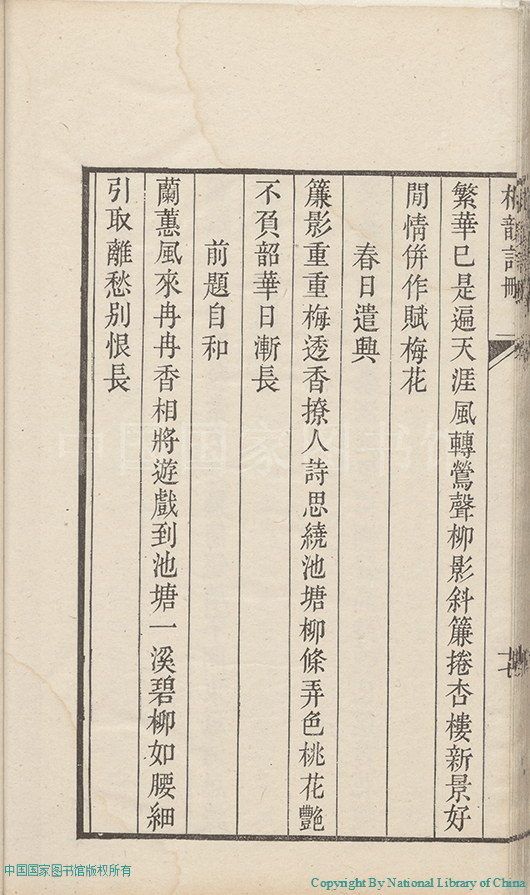 繁華已是遍天涯風轉鶯聲柳影斜簾捲杏樓新景好
閒情倂作賦梅花
春日遣興
簾影重重梅透香撩人詩思繞池塘柳條弄色桃花艷
不負韶華日漸長
前題自和
蘭蕙風來冉冉香相將遊戲到池塘一溪碧柳如腰細
引取離愁別恨長
中国国家图书馆
中国国家图书馆版权所有
Copyright By National Library of China